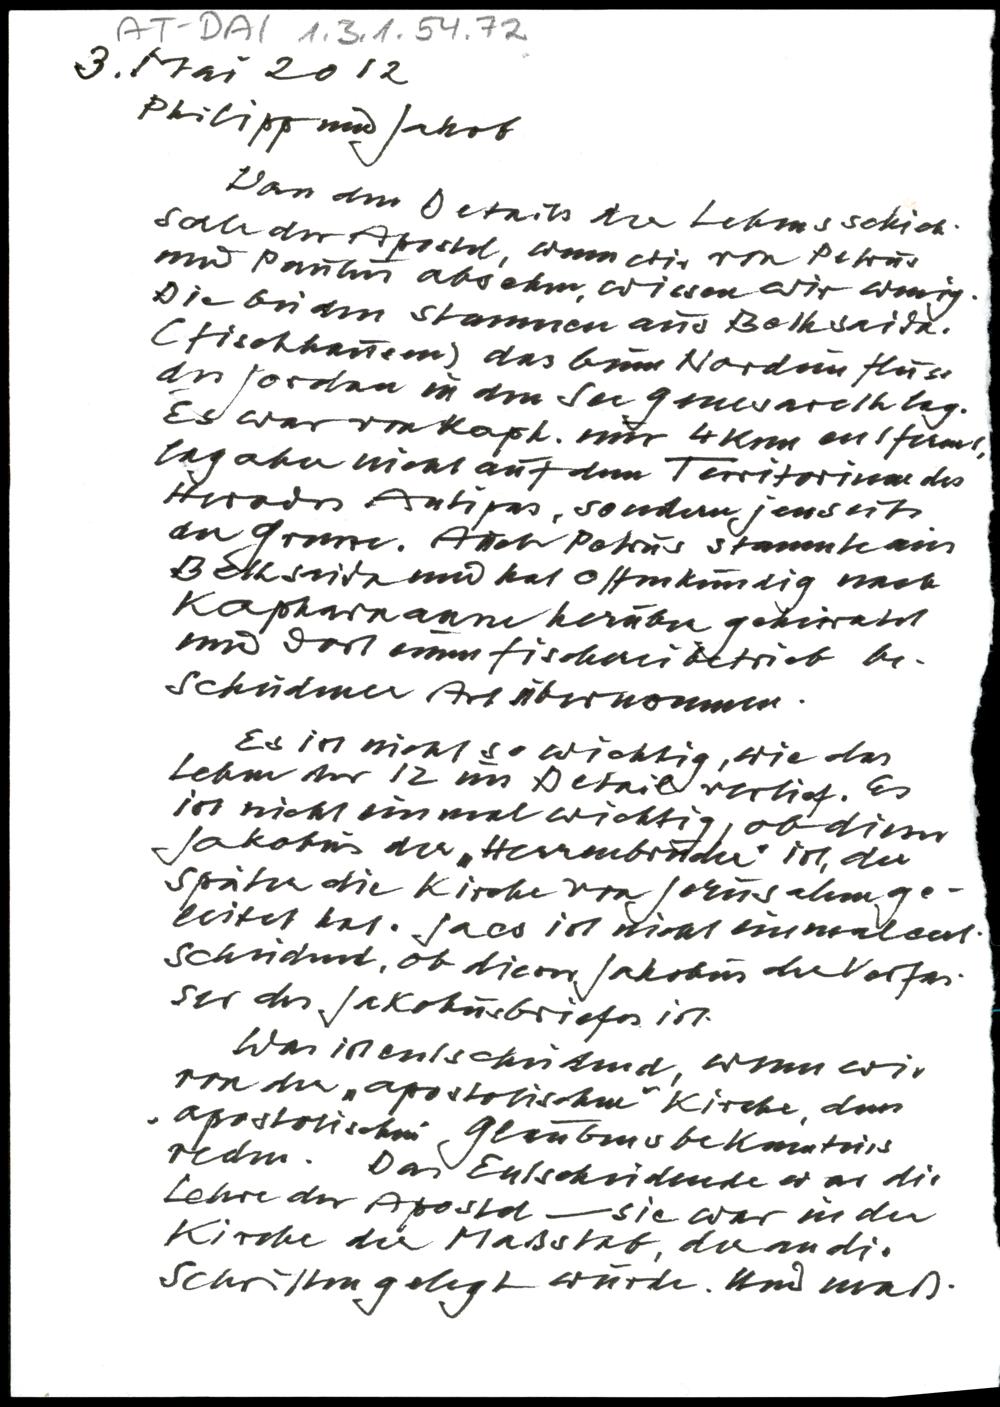 AT-DAI 1.3.1.54.72
3. Mai 2012
Philipp und Jakob
Von den Details der Lebensschick-
sale der Apostel, wenn wir von Petrus
und Paulus absehen, wissen wir wenig.
Die beiden stammen aus Bethsaida.
(Fischhausen) das beim Nordeinfluss
des Jordan in den See Genesareth lag.
Es war von Kaph. nur 4 km entfernt,
lag aber nicht auf dem Territorium des
Herodes Antipas, sondern jenseits
der Grenze. Auch Petrus stammte aus
Bethsaida und hat offenkundig nach
Kapharnaum herüber geheiratet
und dort einen Fischereibetrieb be-
scheidener Art übernommen.
Es ist nicht so wichtig, wie das
Leben der 12 im Detail verlief. Es
ist nicht einmal wichtig, ob dieser
Jakobus der „Herrenbruder" ist, der
später die Kirche von Jerusalem ge-
leitet hat. Ja es ist nicht einmal ent-
scheidend, ob dieser Jakobus der Verfas-
ser des Jakobusbriefes ist.
Was ist entscheidend, wenn wir
von der „apostolischen" Kirche, dem
apostolischen Glaubensbekenntnis
reden. Das Entscheidende war die
Lehre der Apostel — sie war in der
Kirche der Maßstab, der an die
Schriften gelegt wurde. Und maß-